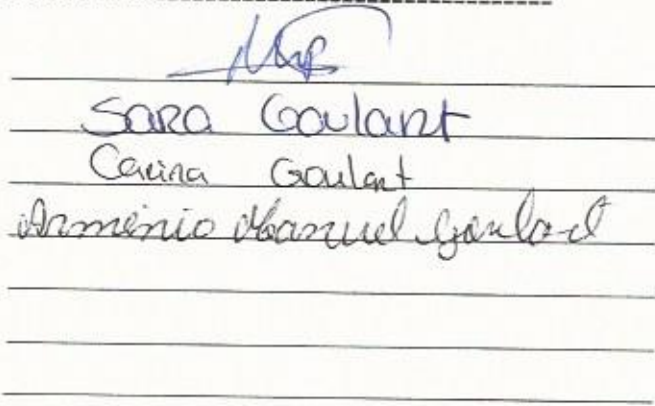 Sara Goulart
Carina Goulart
Arménio Manuel Goulart